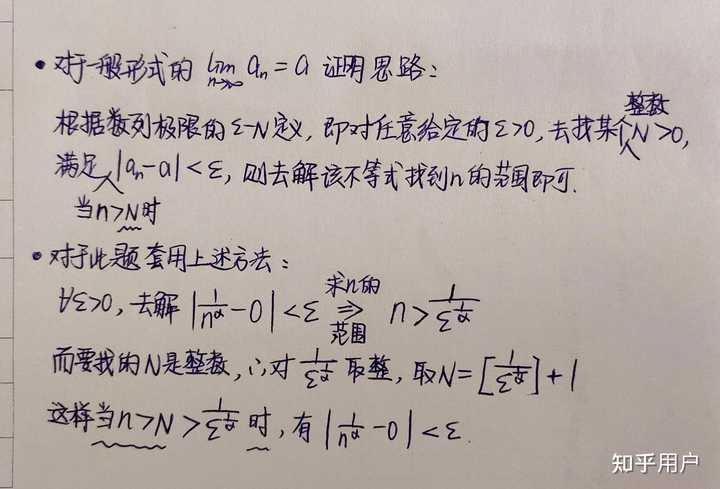 • 对于一般形式的 lim_{n→∞} aₙ = a 证明思路:
根据数列极限的 ε-N定义, 即对任意给定的 ε>0, 去找某个整数N>0,
满足当n>N时 |aₙ-a|<ε, 则去解该不等式找到n的范围即可.
• 对于此题套用上述方法:
∀ε>0, 去解 |1/n^α - 0| < ε 求n的范围 ⇒ n > 1/ε^{1/α}
而要找的N是整数, ∴对 1/ε^{1/α} 取整, 取N = [1/ε^{1/α}] + 1
这样当n>N>1/ε^{1/α} 时, 有 |1/n^α - 0| < ε.
知乎用户